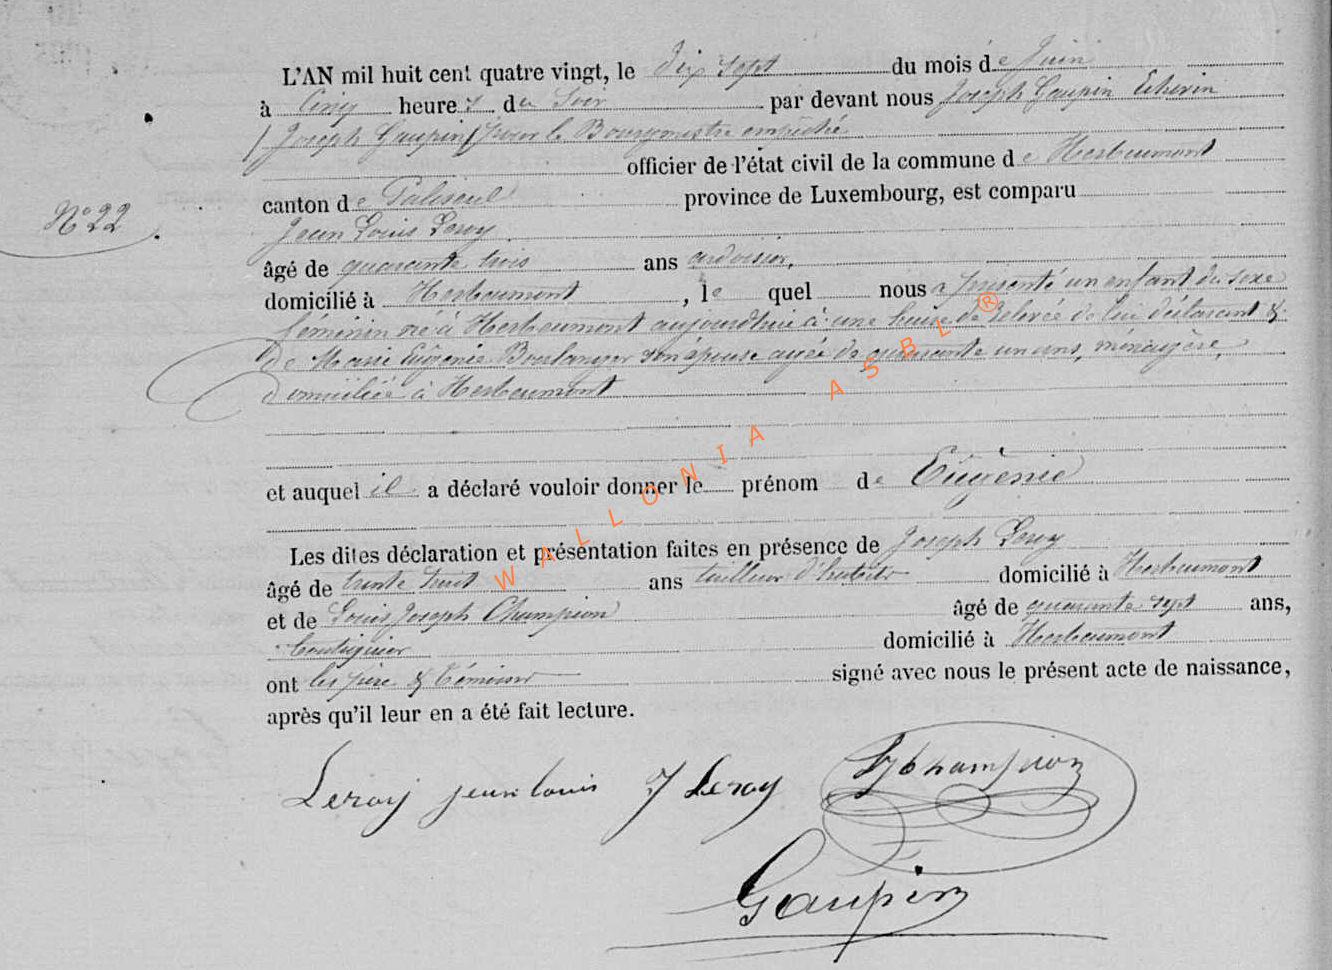 L'AN mil huit cent quatre vingt, le dix sept du mois de Juin
à cinq heures du soir par devant nous Joseph Gaupin Echevin
(Joseph Gaupin) pour le Bourgmestre empêché
officier de l'état civil de la commune de Herbeumont
canton de Paliseul province de Luxembourg, est comparu
N° 22
Jean Louis Leroy
âgé de quarante trois ans ardoisier,
domicilié à Herbeumont, le quel nous a présenté un enfant du sexe
féminin né à Herbeumont aujourd'hui à une heure de relevée de lui déclarant &
de Marie Eugénie Boulanger son épouse agée de quarante un ans, ménagère,
domiciliée à Herbeumont
et auquel il a déclaré vouloir donner le prénom de Eugénie
Les dites déclaration et présentation faites en présence de Joseph Leroy
âgé de trente huit ans tailleur d'habits domicilié à Herbeumont
et de Louis Joseph Champion âgé de quarante sept ans,
boutiquier domicilié à Herbeumont
ont les père & témoins signé avec nous le présent acte de naissance,
après qu'il leur en a été fait lecture.
Leroy jean louis J Leroy LJ Champion
Gaupin
WALLONIA ASBL ®